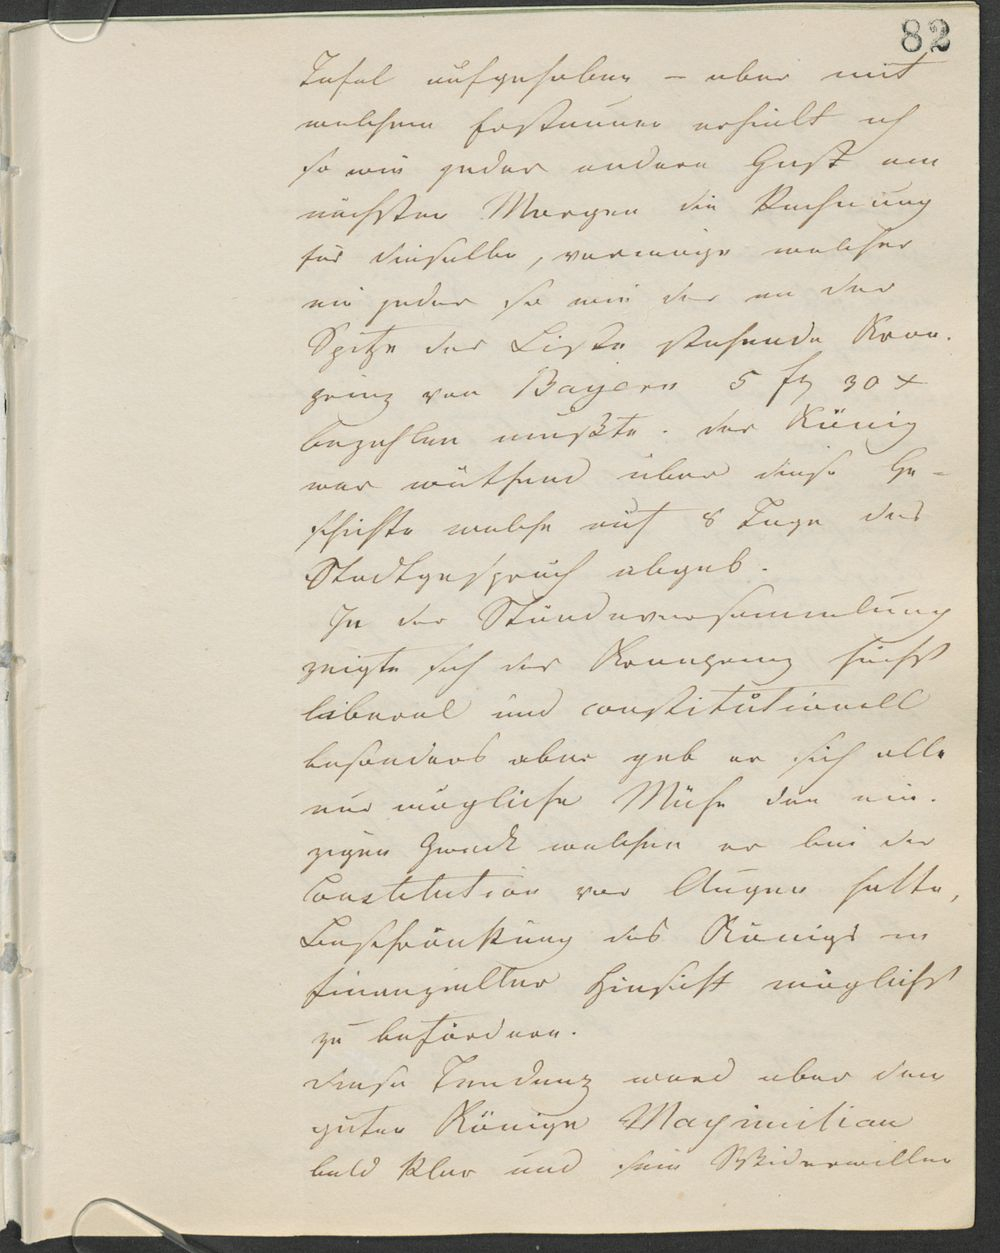 82
Tafel aufgehoben – aber mit
welchem Erstaunen erhielt ich
so wie jeder andere Gast am
nächsten Morgen die Rechnung
für dieselbe, vermöge welcher
ein jeder so wie der an der
Spitze der Liste stehende Kron-
prinz von Bayern 5 fl 30 x
bezahlen mußte. der König
war wüthend über diese Ge-
schichte welche auf 8 Tage das
Stadtgespräch abgab.
In der Ständeversammlung
zeigte sich der Kronprinz höchst
liberal und constitutionell
besonders aber gab er sich alle
nur mögliche Mühe den ein-
zigen Zweck welchen er bei der
Constitution vor Augen hatte,
Beschränkung des Königs in
finanzieller Hinsicht möglichst
zu befördern.
diese Tendenz ward aber dem
guten Könige Maximilian
bald klar und sein Widerwillen